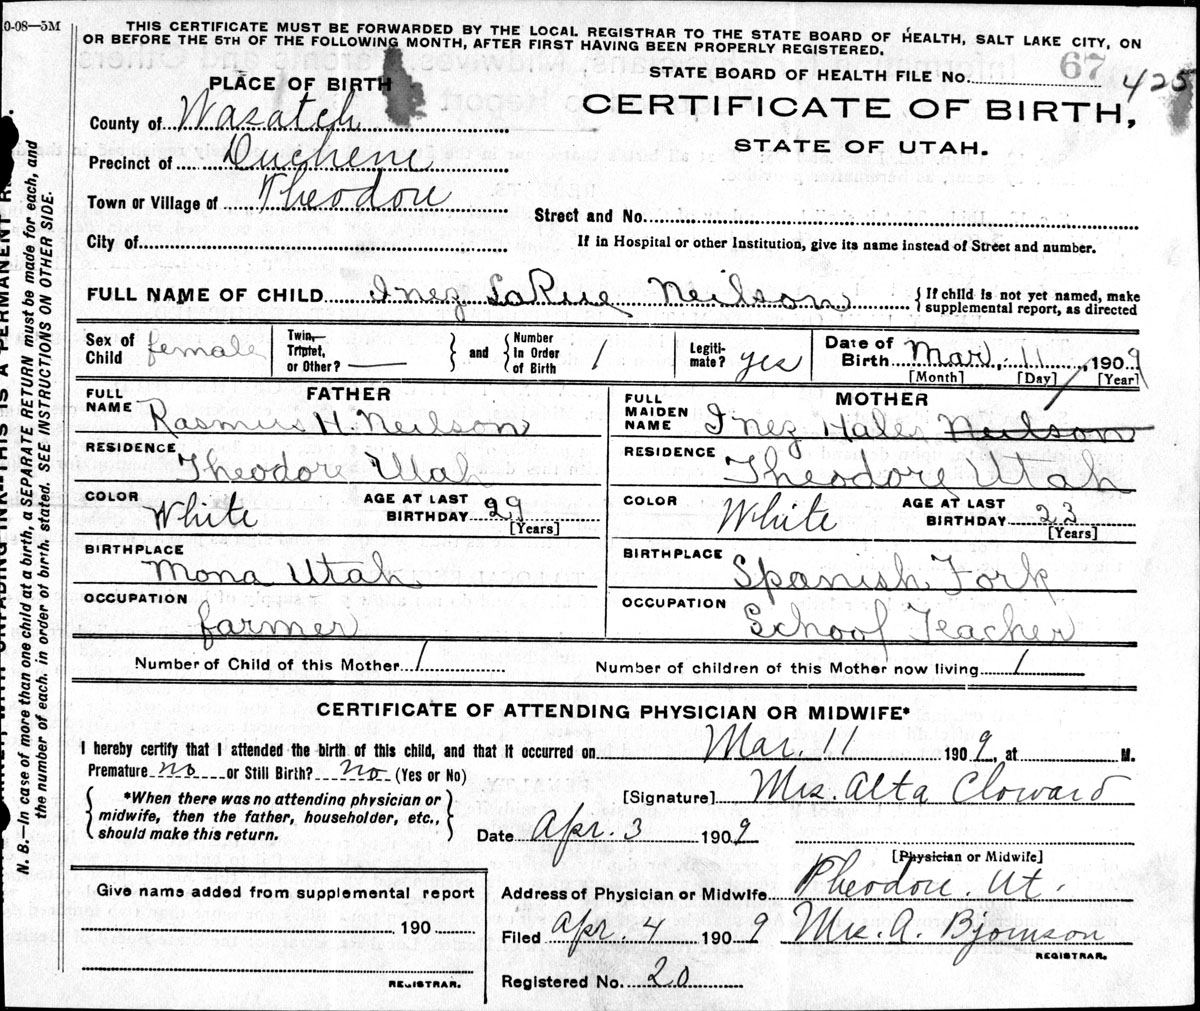 0-08—5M
THIS CERTIFICATE MUST BE FORWARDED BY THE LOCAL REGISTRAR TO THE STATE BOARD OF HEALTH, SALT LAKE CITY, ON
OR BEFORE THE 5TH OF THE FOLLOWING MONTH, AFTER FIRST HAVING BEEN PROPERLY REGISTERED.
67
PLACE OF BIRTH
STATE BOARD OF HEALTH FILE No. 425
CERTIFICATE OF BIRTH,
STATE OF UTAH.
County of Wasatch
Precinct of Duchene
Town or Village of Theodore
Street and No.
City of
If in Hospital or other Institution, give its name instead of Street and number.
FULL NAME OF CHILD Inez LaRue Neilson { If child is not yet named, make
supplemental report, as directed
Sex of Child female
Twin, Triplet, or Other? —
and Number in Order of Birth 1
Legitimate? yes
Date of Birth Mar. 11, 1909
[Month] [Day] [Year]
FATHER
FULL NAME Rasmus H. Neilson
RESIDENCE Theodore Utah
COLOR White
AGE AT LAST BIRTHDAY 29 [Years]
BIRTHPLACE Mona Utah
OCCUPATION farmer
MOTHER
FULL MAIDEN NAME Inez Hales Neilson
RESIDENCE Theodore Utah
COLOR White
AGE AT LAST BIRTHDAY 23 [Years]
BIRTHPLACE Spanish Fork
OCCUPATION School Teacher
Number of Child of this Mother 1
Number of children of this Mother now living 1
CERTIFICATE OF ATTENDING PHYSICIAN OR MIDWIFE*
I hereby certify that I attended the birth of this child, and that it occurred on Mar. 11 1909, at M.
Premature no or Still Birth? no (Yes or No)
*When there was no attending physician or
midwife, then the father, householder, etc.,
should make this return.
[Signature] Mrs. Alta Cloward
Date Apr. 3 1909
[Physician or Midwife]
Give name added from supplemental report
190
REGISTRAR.
Address of Physician or Midwife Theodore. Ut.
Filed Apr 4 1909 Mrs. A. Bjornson
REGISTRAR.
Registered No. 20
N. B.—In case of more than one child at a birth, a SEPARATE RETURN must be made for each, and
the number of each, in order of birth, stated. SEE INSTRUCTIONS ON OTHER SIDE.
UNFADING INK—THIS IS A PERMANENT